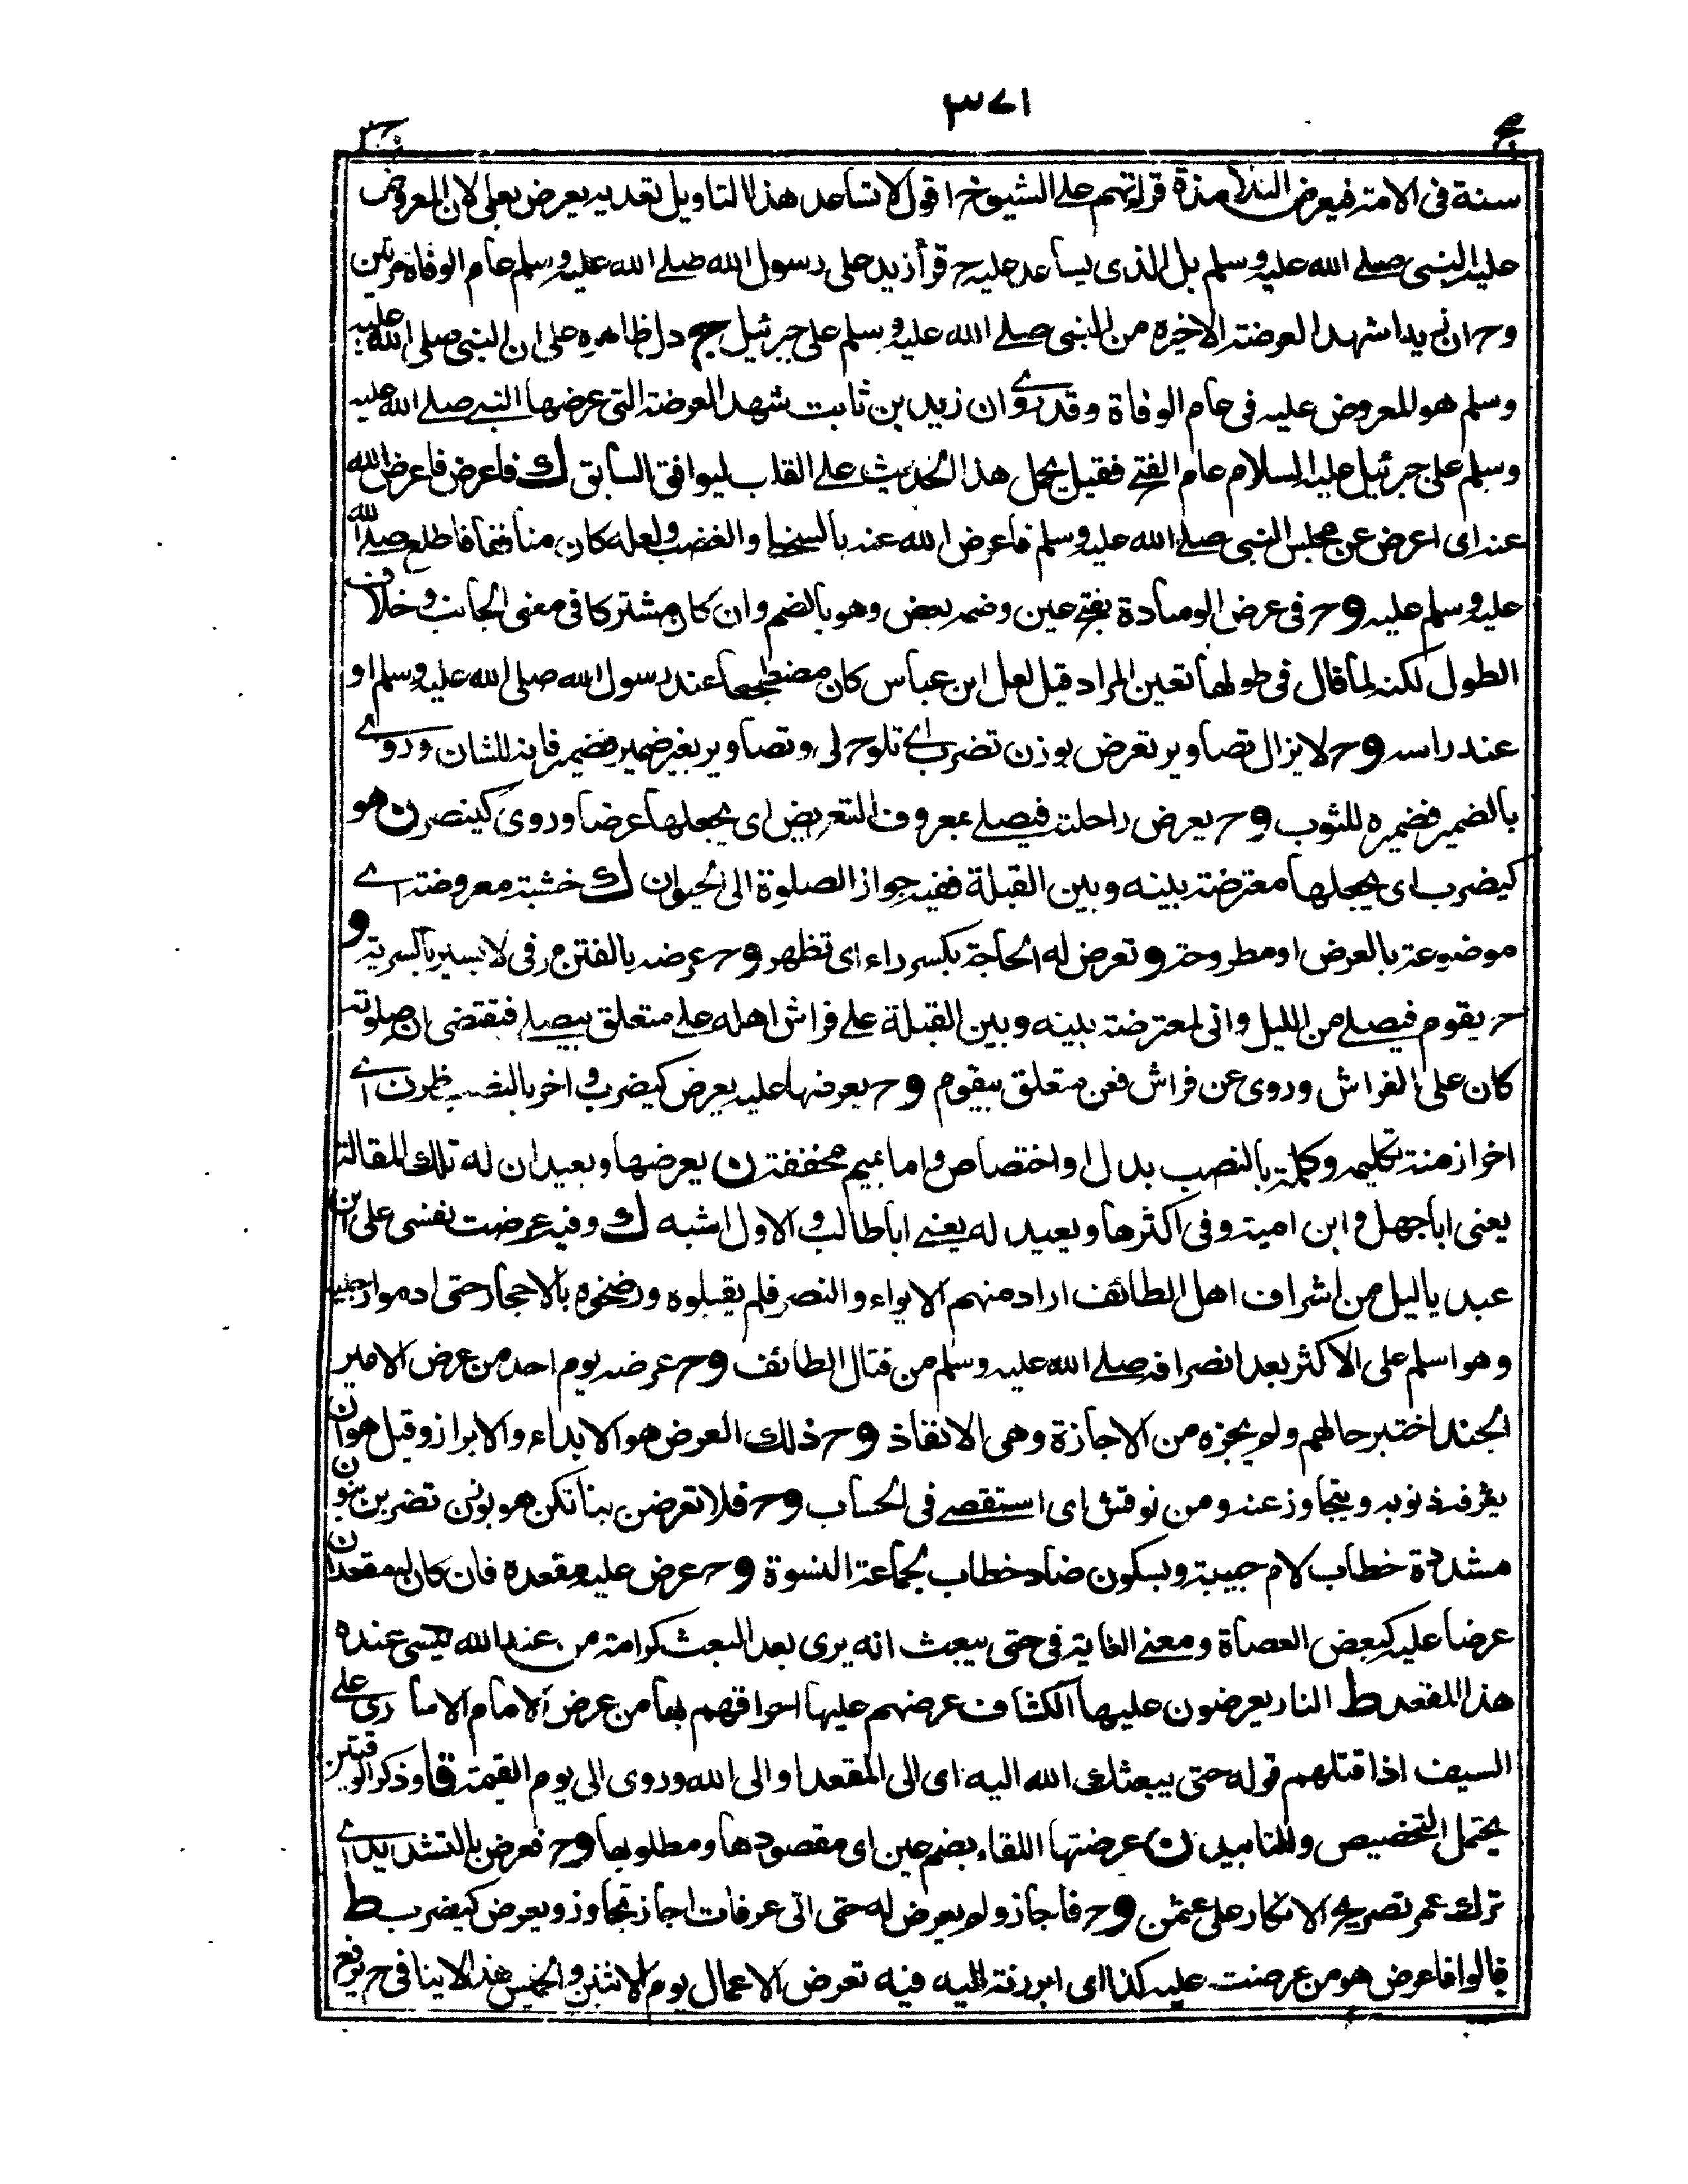 ٣٧١
سنة فى الامة فيعرض التلامذة قراءتهم على الشيوخ اقول لا تساعد هذا التاويل تعديه يعرض بعلى لان المعروض
عليه النبى صلى الله عليه وسلم بل الذى يساعد عليه ح قرأ زيد على رسول الله صلى الله عليه وسلم عام الوفاة مرتين
وح ان زيدا شهد العرضة الاخيرة من النبى صلى الله عليه وسلم على جبرئيل ج دل ظاهره على ان النبى صلى الله عليه
وسلم هو المعروض عليه فى عام الوفاة وقد روى ان زيد بن ثابت شهد العرضة التى عرضها النبى صلى الله عليه
وسلم على جبرئيل عليه السلام عام الفتح فقيل يحمل هذا الحديث على القلب ليوافق السابق ك فاعرض فاعرض الله
عنه اى اعرض عن مجلس النبى صلى الله عليه وسلم فاعرض الله عنه بالسخط والغضب ولعله كان منافقا فاطلع صلى الله
عليه وسلم عليه وح فى عرض الوسادة بفتح عين وضمه بعض وهو بالضم وان كان مشتركا فى معنى الجانب وخلاف
الطول لكنه لما قال فى طولها تعين المراد قيل لعل ابن عباس كان مضطجعا عند رسول الله صلى الله عليه وسلم او
عند راسه وح لا يزال تصاوير تعرض بوزن تضرب اى تلوح لى وتصاوير بغير ضمير فضمير فانه للشان وروى
بالضمير فضميره للثوب وح يعرض راحلته فيصلى بمعروف التعريض اى يجعلها عرضا وروى كينصر ن هو
كيضرب اى يجعلها معترضة بينه وبين القبلة ففيه جواز الصلوة الى الحيوان ك خشبة معروضة اى
موضوعة بالعرض او مطروحة و تعرض له الحاجة بكسر راء اى تظهر وح عرضه بالفتن مر فى لا يسير بالسرية و
ح يقوم فيصلى من الليل وانى لمعترضة بينه وبين القبلة على فراش اهله على متعلق بيصلى فتقتضى ان صلوته
كان على الفراش وروى عن فراش فعن متعلق بيقوم وح يعرضها عليه يعرض كيضرب و اخر بالنصب ظرف اى
اخر ازمنة تكليمه وكلمة بالنصب بدل او اختصاص و اما بميم مخففة ن يعرضها ويعيدان له تلك المقالة
يعنى ابا جهل و ابن امية وفى اكثرها ويعيد له يعنى ابا طالب و الاول اشبه ك وفيه عرضت نفسى على ابن
عبد ياليل من اشراف اهل الطائف اراد منهم الايواء والنصر فلم يقبلوه ورضخوه بالاحجار حتى ادموا رجليه
وهو اسلم على الاكثر بعد انصرافه صلى الله عليه وسلم من قتال الطائف وح عرضه يوم احد من عرض الامير
الجند اختبر حالهم ولم يجزه من الاجازة وهى الانفاذ وح ذلك العرض هو الابداء والابراز وقيل هو ان
يعرفه ذنوبه ويتجاوز عنه ومن نوقش اى استقصى فى الحساب وح فلا تعرضن بناتكن هو بوزن تضربن بنون
مشددة خطاب لام حبيبة وبسكون ضاد خطاب لجماعة النسوة وح عرض عليه مقعده فان كان له مقعدان
عرضا عليه كبعض العصاة ومعنى الغاية فى حتى يبعث انه يرى بعد البعث كرامة من عند الله ينسى عنده
هذا المقعد ط النار يعرضون عليها الكشاف عرضهم عليها احراقهم بها من عرض الامام الاسارى على
السيف اذا قتلهم قوله حتى يبعثك الله اليه اى الى المقعد او الى الله وروى الى يوم القيمة قا وذكر الوقتين
يحتمل التخصيص والتابيد ن عرضتها اللقاء بضم عين اى مقصودها ومطلوبها وح فعرض بالتشديد اى
ترك عمر تصريح الانكار على عثمن وح فاجاز ولم يعرض له حتى اتى عرفات اجاز تجاوز ويعرض كيضرب ط
قالوا فاعرض هو من عرضت عليه كذا اى ابرزته اليه فيه تعرض الاعمال يوم الاثنين و الخميس هذا لا ينافى ح يرفع